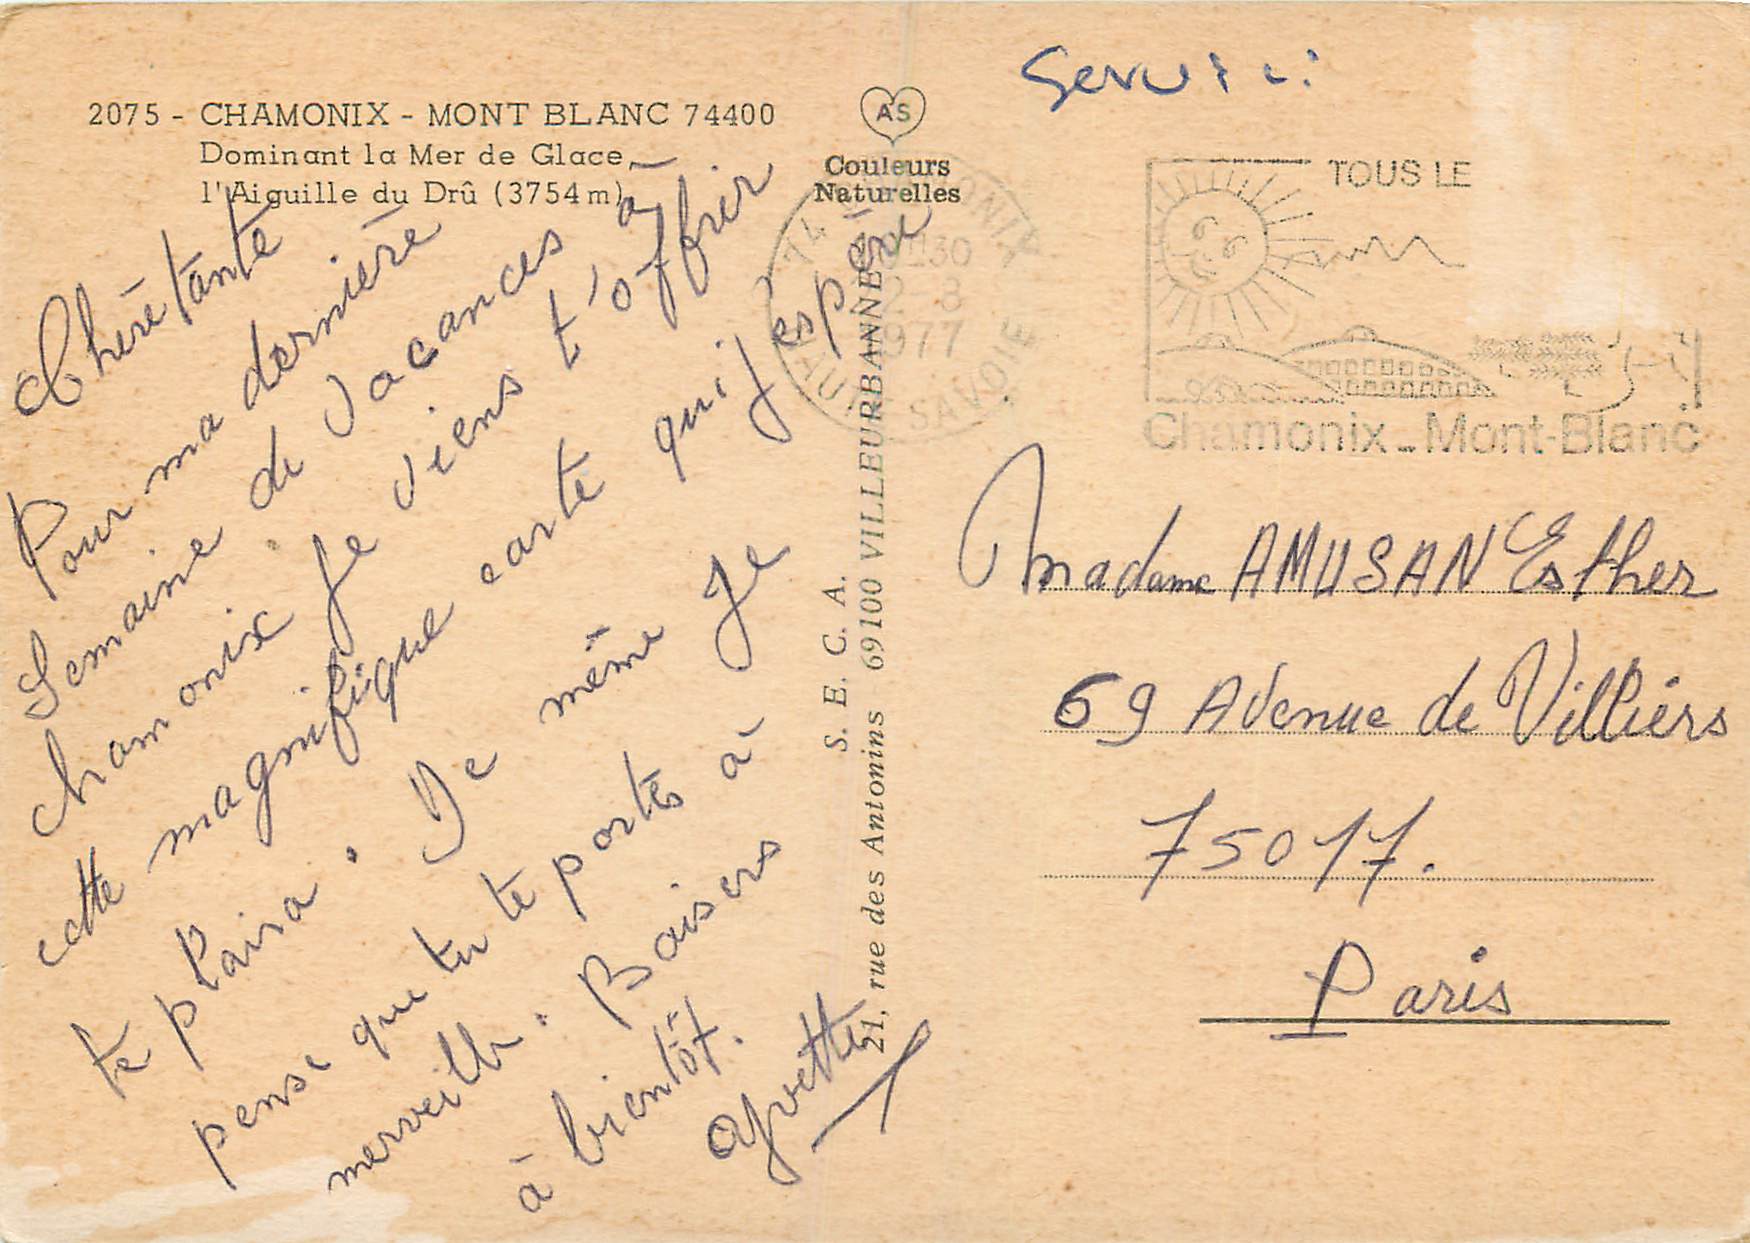 2075 - CHAMONIX - MONT BLANC 74400
Dominant la Mer de Glace,
l'Aiguille du Drû (3754 m)
AS
Couleurs
Naturelles
Chère tante
Pour ma dernière
Semaine de Vacances à
chamonix Je viens t'offrir
cette magnifique carte qui j'espère
te plaira. De même Je
pense que tu te portes à
merveille. Baisers
à bientôt.
Yvette
S. E. C. A.
21, rue des Antonins 69100 VILLEURBANNE
74 CHAMONIX
30
2 - 8
1977
HAUTE SAVOIE
TOUS LE
Chamonix - Mont-Blanc
Madame AMUSAN Esther
69 Avenue de Villiers
75017.
Paris